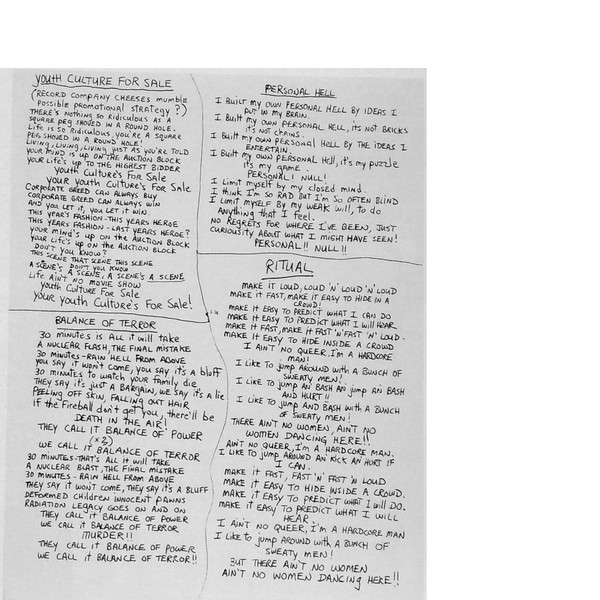 YOUTH CULTURE FOR SALE
(RECORD COMPANY CHEESES mumble
possible promotional strategy?)
THERE'S NOTHING SO RIDICULOUS AS A
SQUARE PEG SHOVED IN A ROUND HOLE.
Life is so Ridiculous, you're a square
PEG SHOVED IN A ROUND HOLE!
Living, Living, Living, just as you're told
YOUR MIND IS UP ON THE AUCTION BLOCK
YOUR LIFE'S UP TO THE HIGHEST BIDDER
youth Culture's For Sale
your youth Culture's For Sale
CORPORATE GREED CAN ALWAYS BUY
CORPORATE GREED CAN ALWAYS WIN
AND YOU LET IT, YOU LET IT WIN.
THIS YEAR'S FASHION - THIS YEARS HEROE
THIS YEARS FASHION - LAST YEARS HEROE?
YOUR MIND'S UP ON THE AUCTION BLOCK
YOUR LIFE'S UP ON THE AUCTION BLOCK
DON'T YOU KNOW?
THIS SCENE THAT SCENE THIS SCENE
A SCENE'S, DON'T YOU KNOW
A SCENE, A SCENE'S A SCENE
Life Ain't NO MOVIE SHOW
youth Culture For Sale
your youth Culture's For Sale!
BALANCE OF TERROR
30 minutes is All it will take
A NUCLEAR FLASH, THE FINAL MISTAKE
30 minutes - RAIN HELL FROM ABOVE
you say it won't come, you say it's a bluff
30 minutes to watch your family die
They say it's just a BARGAIN, we say it's a lie
PEELING OFF SKIN, FALLING OUT HAIR
If the Fireball don't get you, there'll be
DEATH IN THE AIR!
THEY CALL IT BALANCE OF POWER
(x3)
WE CALL IT BALANCE OF TERROR
30 MINUTES - THAT'S ALL it will TAKE
A NUCLEAR BLAST, THE FINAL MISTAKE
30 MINUTES - RAIN HELL FROM ABOVE
THEY SAY IT WON'T COME, THEY SAY IT'S A BLUFF
DEFORMED CHILDREN INNOCENT PAWNS
RADIATION LEGACY GOES ON AND ON
THEY CALL IT BALANCE OF POWER
WE CALL IT BALANCE OF TERROR
MURDER!!
THEY CALL IT BALANCE OF POWER
WE CALL IT BALANCE OF TERROR!!
PERSONAL HELL
I Built my own PERSONAL HELL BY IDEAS I
PUT IN MY BRAIN.
I Built my own PERSONAL HELL, its NOT BRICKS
it's NOT CHAINS.
I Built my own PERSONAL HELL BY THE IDEAS I
ENTERTAIN.
I Built my own PERSONAL Hell, it's my puzzle
it's my game.
PERSONAL! NULL!
I Limit myself by my closed mind.
I think I'm so RAD But I'm so OFTEN BLIND
I Limit mySELF By my WEAK will, to do
Anything that I feel.
NO REGRETS FOR WHERE I'VE BEEN, JUST
CURIOUSITY ABOUT WHAT I MIGHT HAVE SEEN!
PERSONAL!! NULL!!
RITUAL
MAKE IT LOUD, LOUD 'N' LOUD 'N' LOUD
MAKE IT FAST, MAKE IT EASY TO HIDE IN A
CROWD!
MAKE IT EASY TO PREDICT WHAT I CAN DO
MAKE IT EASY TO PREDICT WHAT I WILL HEAR.
MAKE IT FAST, MAKE IT FAST 'N' FAST 'N' LOUD.
MAKE IT EASY TO HIDE INSIDE A CROWD
I AIN'T NO QUEER. I'M A HARDCORE
MAN!
I Like to jump AROUND WITH A BUNCH OF
SWEATY MEN!
I LIKE TO JUMP AN BASH AN jump AN BASH
AND HURT!!
I LIKE TO JUMP AND BASH WITH A BUNCH
OF SWEATY MEN!
THERE AIN'T NO WOMEN, AIN'T NO
WOMEN DANCING HERE!!
AIN'T NO QUEER, I'M A HARDCORE MAN.
I LIKE TO jump AROUND AN KICK AN HURT IF
I CAN.
MAKE IT FAST, FAST 'N' FAST 'N LOUD
MAKE IT EASY TO HIDE INSIDE A CROWD.
MAKE IT EASY TO PREDICT WHAT I WILL DO.
MAKE IT EASY TO PREDICT WHAT I WILL
HEAR.
I AIN'T NO QUEER, I'M A HARDCORE MAN
I Like to jump AROUND WITH A BUNCH OF
SWEATY MEN!
BUT THERE AIN'T NO WOMEN
AIN'T NO WOMEN DANCING HERE!!